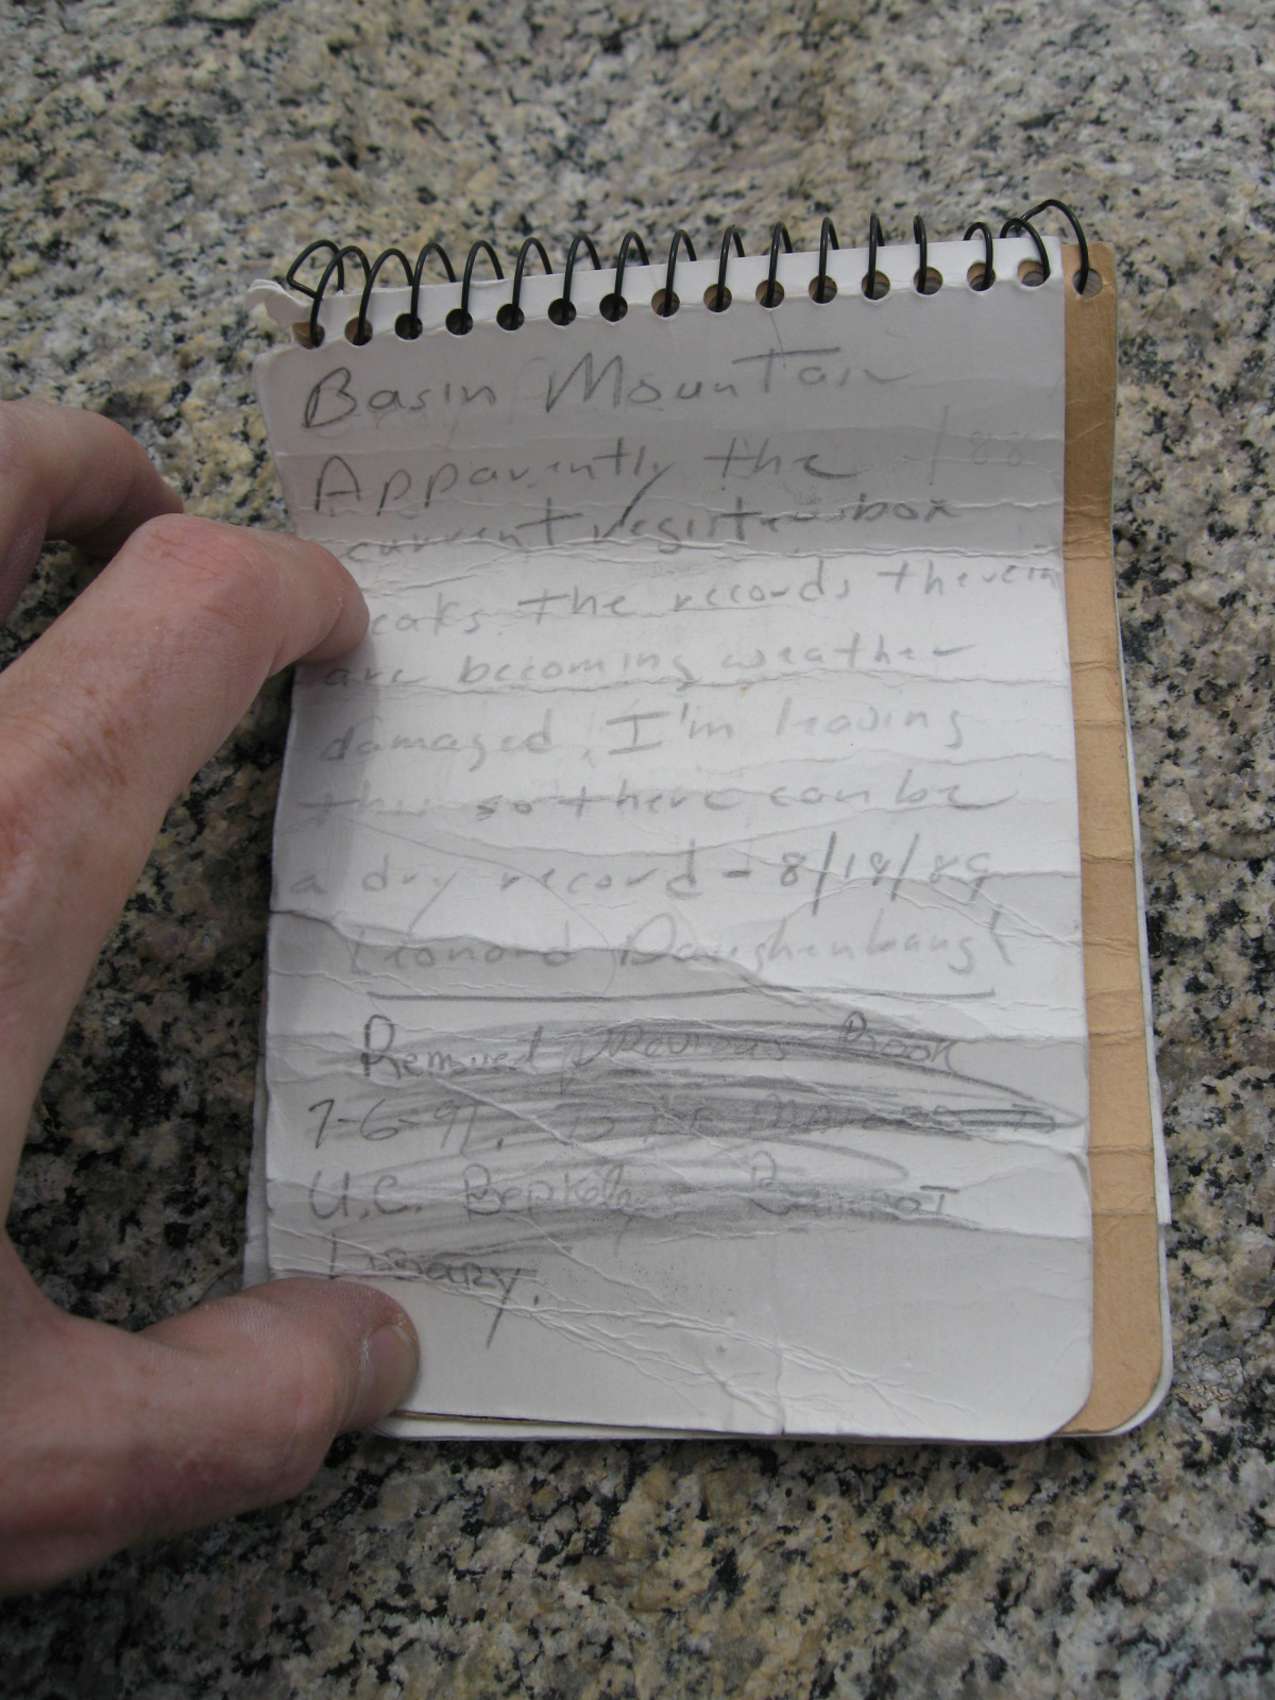 Basin Mountain
Apparently the
current register box
eaks the records therein
are becoming weather
damaged, I'm leaving
this so there can be
a dry record - 8/18/89
Leonard Daughenbaugh
Removed previous Book
7-6-91.
U.C. Berkeley Bancroft
Library.